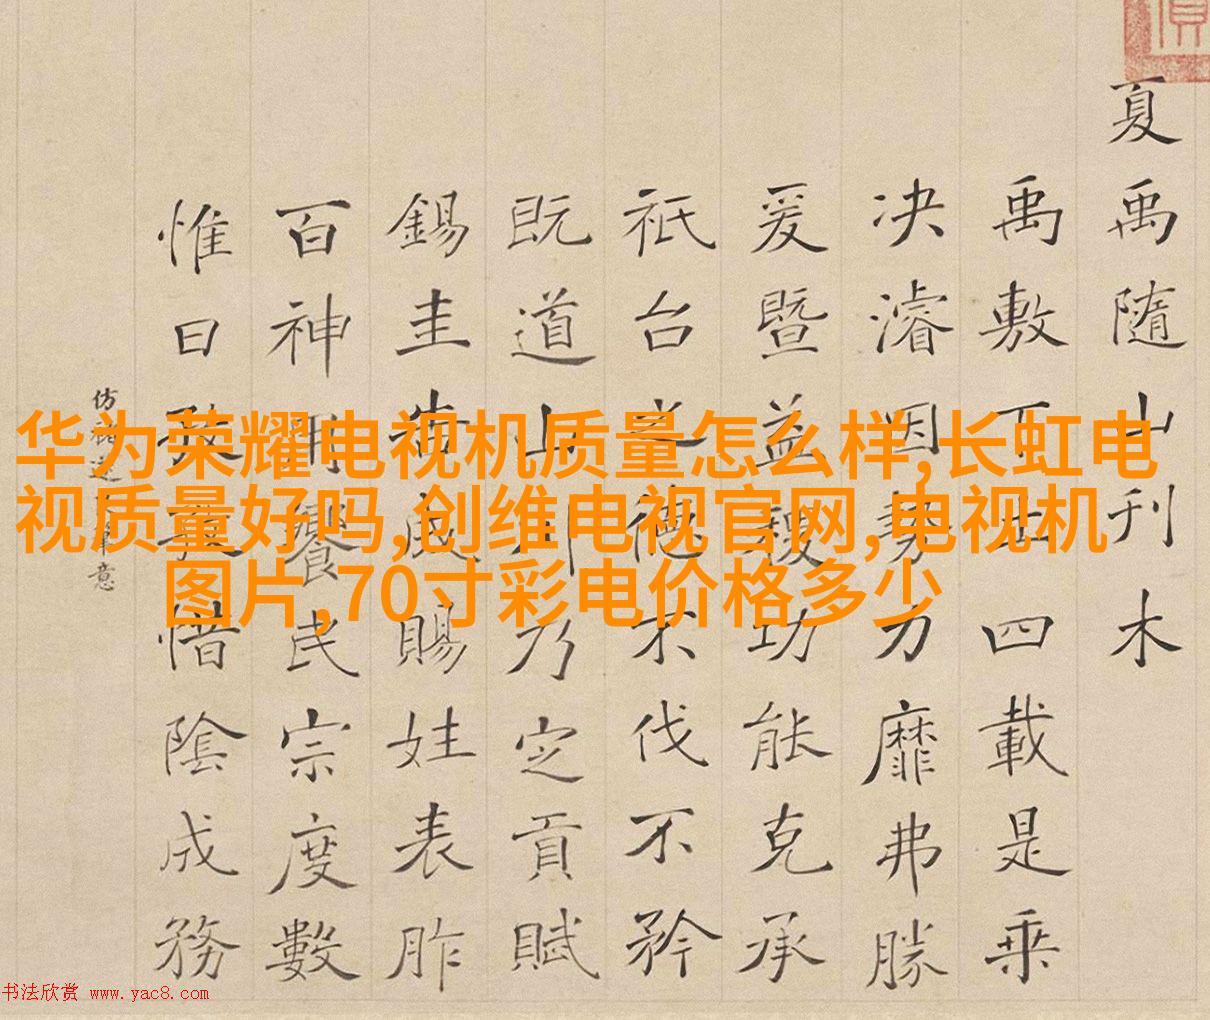 华为荣耀电视机质量怎么样,长虹电
视质量好吗,创维电视官网,电视机
图片,70寸彩电价格多少
夏禹隨山刊木
禹敷下土四載是乘
决濬因勢力靡弗勝
爰暨益稷功能克承
祇台德不伐不矜
既道山川乃定貢賦
錫圭告成賜表胙
百神用饗民宗度數
惟日孜惜陰成務
仿意
书法欣赏 www.yac8.com